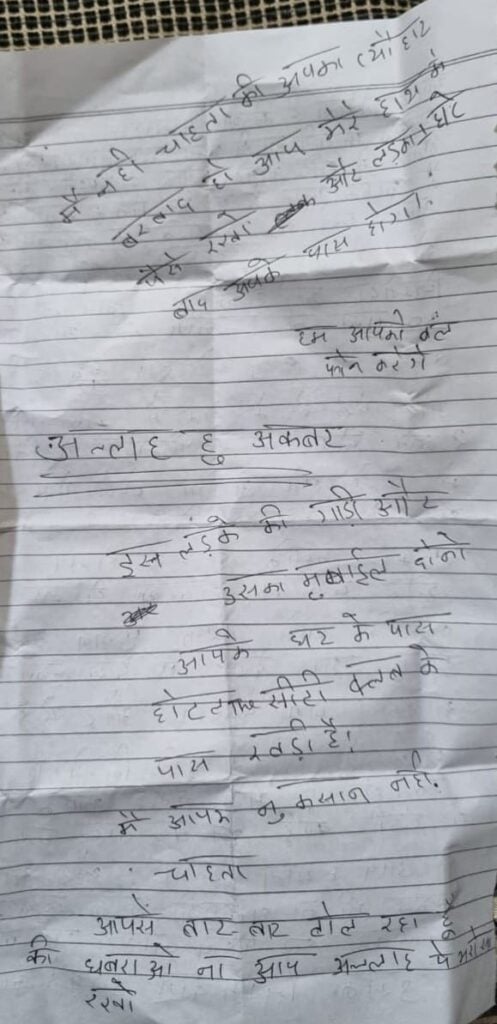 मै नही चाहता की आपका त्यौहार
बरबाद हो आप मेरे हाथ मे
पैसे रखो और लड़का घंटे
बाद आपके पास होगा।
हम आपको कॅल
फोन करेगे
अल्लाह हु अकबर
इस लड़के की गाडी और
उसका मुबाईल दोनो
आपके घर के पास
होटल the सीटी क्लब के
पास खड़ी है।
मै आपका नुकसान नही
चाहता
आपसे बार-बार बोल रहा हूँ
की घबराओ ना आप अल्लाह पे भरोसा
रखो